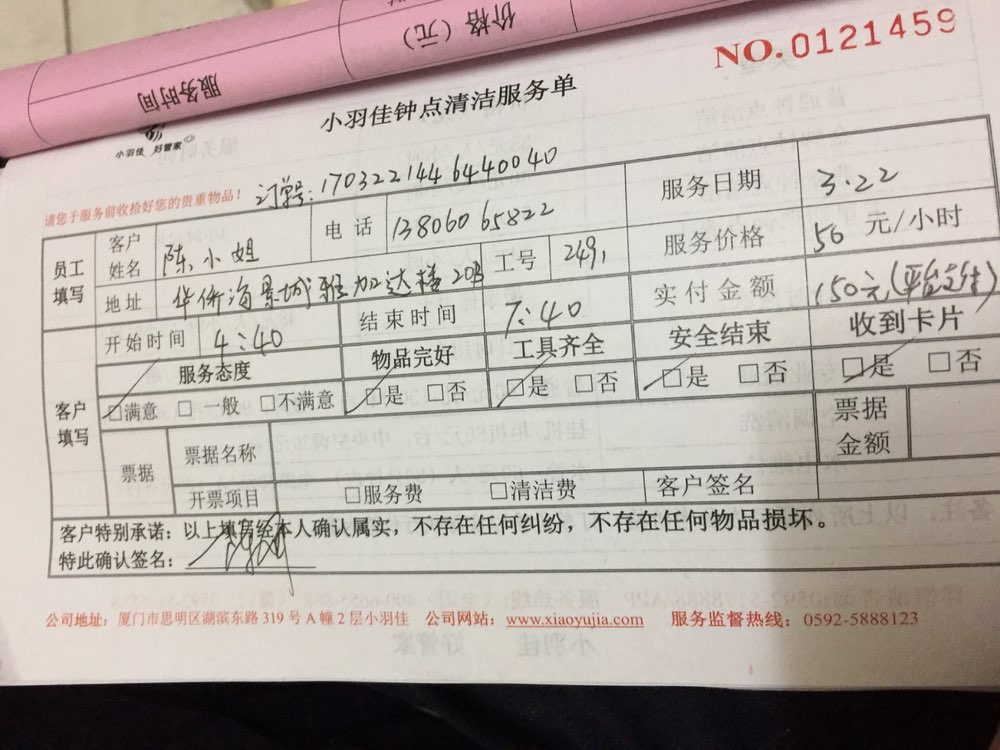 价格（元）
服务时间
NO.0121459
小羽佳钟点清洁服务单
小羽佳 好管家
请您于服务前收拾好您的贵重物品！
订单号：1703221446440040
员工填写
客户姓名 陈小姐 电话 13806065822 服务日期 3.22
地址 华侨海景城雅加达楼20B 工号 2491 服务价格 50 元/小时
开始时间 4:40 结束时间 7:40 实付金额 150元（平台支付）
客户填写
服务态度 物品完好 工具齐全 安全结束 收到卡片
□满意 □一般 □不满意 □是 □否 □是 □否 □是 □否 □是 □否
票据 票据名称 票据金额
开票项目 □服务费 □清洁费 客户签名
客户特别承诺：以上填房经本人确认属实，不存在任何纠纷，不存在任何物品损坏。
特此确认签名：
公司地址：厦门市思明区湖滨东路 319 号 A 幢 2 层小羽佳 公司网站：www.xiaoyujia.com 服务监督热线：0592-5888123